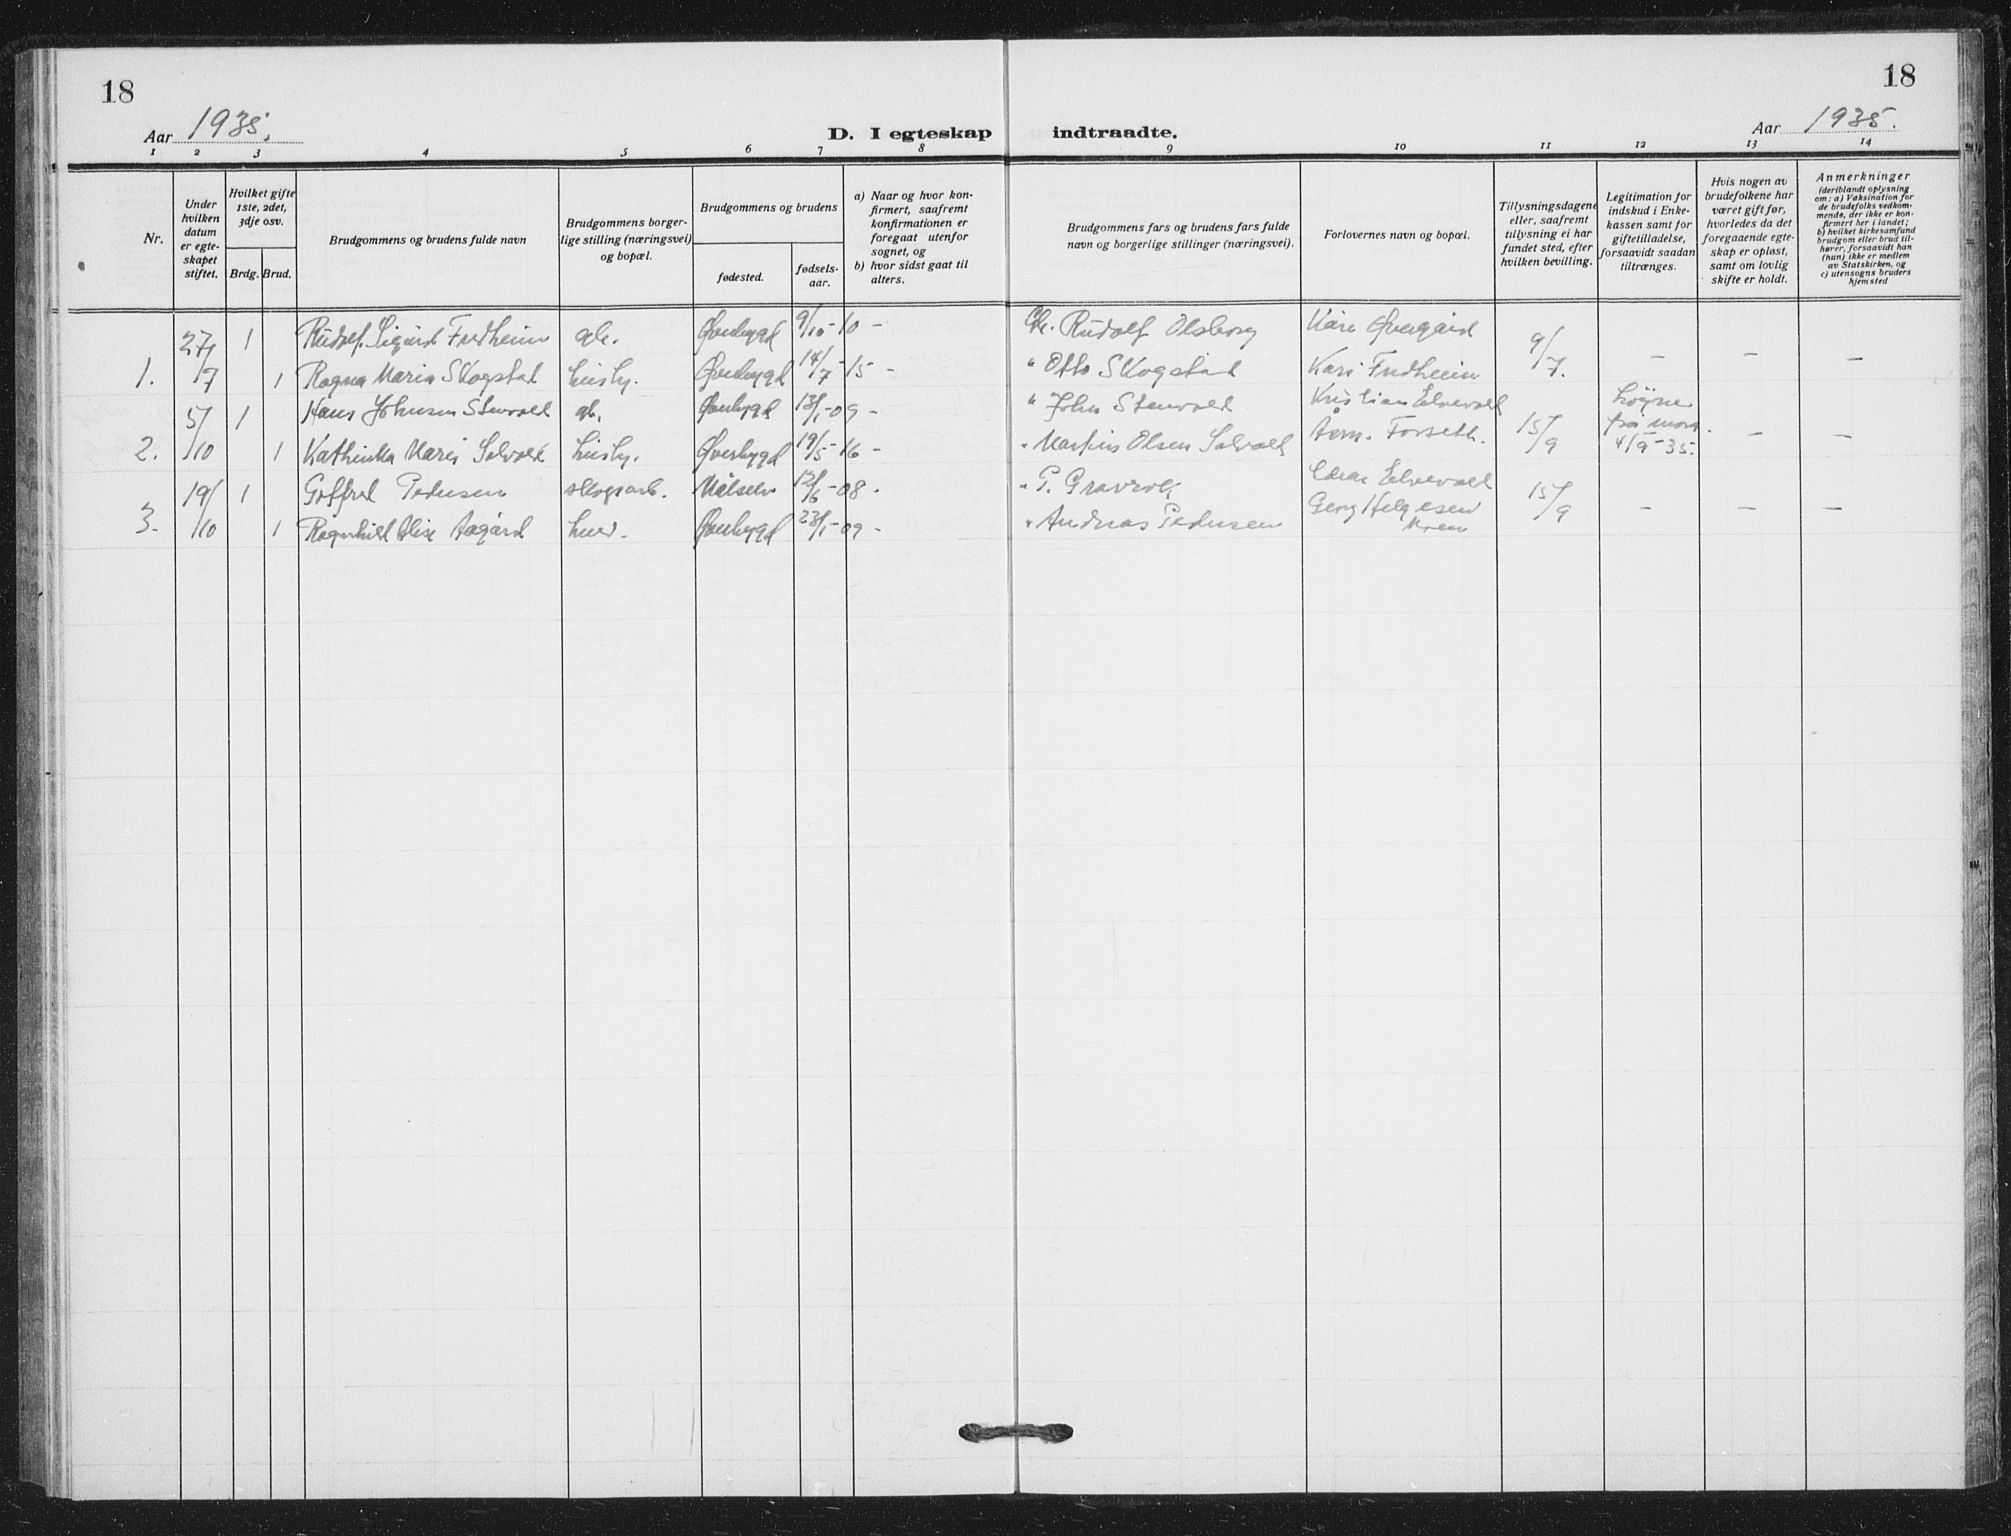 18
18
Aar 1935.
D. I egteskap indtraadte.
Aar 1935.
1 2 3 4 5 6 7 8 9 10 11 12 13 14
Nr.
Under
hvilken
datum
er egte-
skapet
stiftet.
Hvilket gifte
1ste, 2det,
3dje osv.
Brdg. Brud.
Brudgommens og brudens fulde navn
Brudgommens borger-
lige stilling (næringsvei)
og bopæl.
Brudgommens og brudens
fødested.
fødsels-
aar.
a) Naar og hvor kon-
firmert, saafremt
konfirmationen er
foregaat utenfor
sognet, og
b) hvor sidst gaat til
alters.
Brudgommens fars og brudens fars fulde
navn og borgerlige stillinger (næringsvei).
Forlovernes navn og bopæl.
Tillysningsdagene
eller, saafremt
tillysning ei har
fundet sted, efter
hvilken bevilling.
Legitimation for
indskud i Enke-
kassen samt for
giftetilladelse,
forsaavidt saadan
tiltrænges.
Hvis nogen av
brudefolkene har
været gift før,
hvorledes da det
foregaaende egte-
skap er opløst,
samt om lovlig
skifte er holdt.
Anmerkninger
(deriblandt oplysning
om: a) Vaksination for
de brudefolks vedkom-
mende, der ikke er kon-
firmert her i landet;
b) hvilket kirkesamfund
brudgom eller brud til-
hører, forsaavidt han
(hun) ikke er medlem
av Statskirken, og
c) utensogns bruders
hjemsted
27/ 1 Rudolf Sigurd Fredheim gb. Øverbygd 9/10-10 - Rudolf Olsborg Kåre Øvergård 9/
1. /7 1 Ragna Maria Skogstad husby. Øverbygd 14/7-15 - " Otto Skogstad Kari Fredheim 7. - - -
5/ 1 Hans Johnsen Stenvold gb. Øverbygd 13/1-09 - " John Stenvold Kristian Elvevold 15/
2. /10 1 Kathinka Marie Solvold husby. Øverbygd 19/5-16 - " Martins Olsen Solvold Forseth. /9 frå mora 4/9-35. - -
19/ 1 Goffred Pedersen skogsarb. Målselv 12/6-08 - " P. Gravrok Elvevold 15/
3. /10 1 Ragnhild Aagård Øverbygd 23/1-09 - " Andreas Pedersen Georg Helgesen Moen /9 - - -